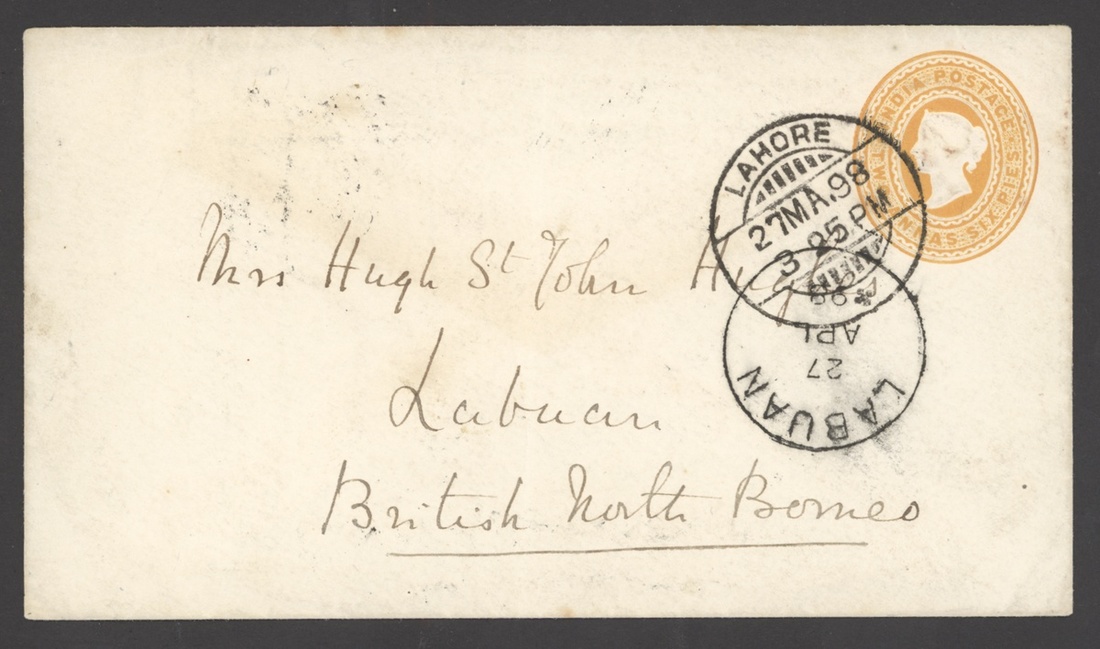 INDIA POSTAGE
TWO ANNAS SIX PIES
LAHORE
27MA.98
3 25 PM
Mrs Hugh St John
Labuan
British North Borneo
LABUAN
27
APL
98